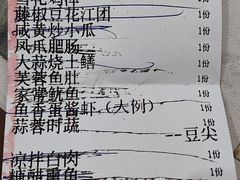 藤椒豆花江团 1份
咸黄炒小瓜 1份
凤爪肥肠 1份
大蒜烧土鳝 1份
芙蓉鱼肚 1份
家常鱿鱼 1份
鱼香蛋酱虾（大例） 1份
蒜蓉时蔬 1份
--豆尖
凉拌白肉 1份
糖醋熏鱼 1份